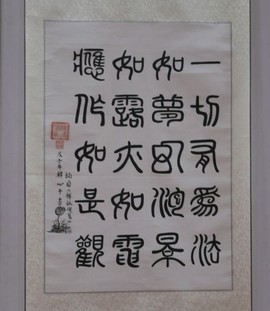 一切有爲法
如夢幻泡景
如露亦如電
應作如是觀